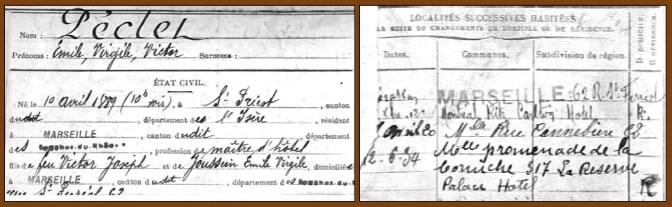 Nom : Péclet
Prénoms : Emile, Virgile, Victor Surnoms :
ÉTAT CIVIL.
Né le 10 avril 1889 (10 bis), à St Priest, canton
dudit, département de l'Isère, résidant
à MARSEILLE, canton dudit, département
des Bouches-du-Rhône, profession de maître d'hôtel
fils de feu Victor Joseph et de Joussein Emile Virgile, domiciliés
à MARSEILLE, canton dudit, département des Bouches-du-
rue St Ferréol 62
LOCALITÉS SUCCESSIVES HABITÉES
PAR SUITE DE CHANGEMENTS DE DOMICILE OU DE RÉSIDENCE.
Dates. Communes. Subdivision de région. D DOMICILE, R RÉSIDENCE.
MARSEILLE 62 R. St Ferréol
Montréal Ritz Carlton Hotel R.
20 Mlle Rue Cannebière 63
12-6-34 Mlle promenade de la
Corniche 317 La Reserve
Palace Hotel R